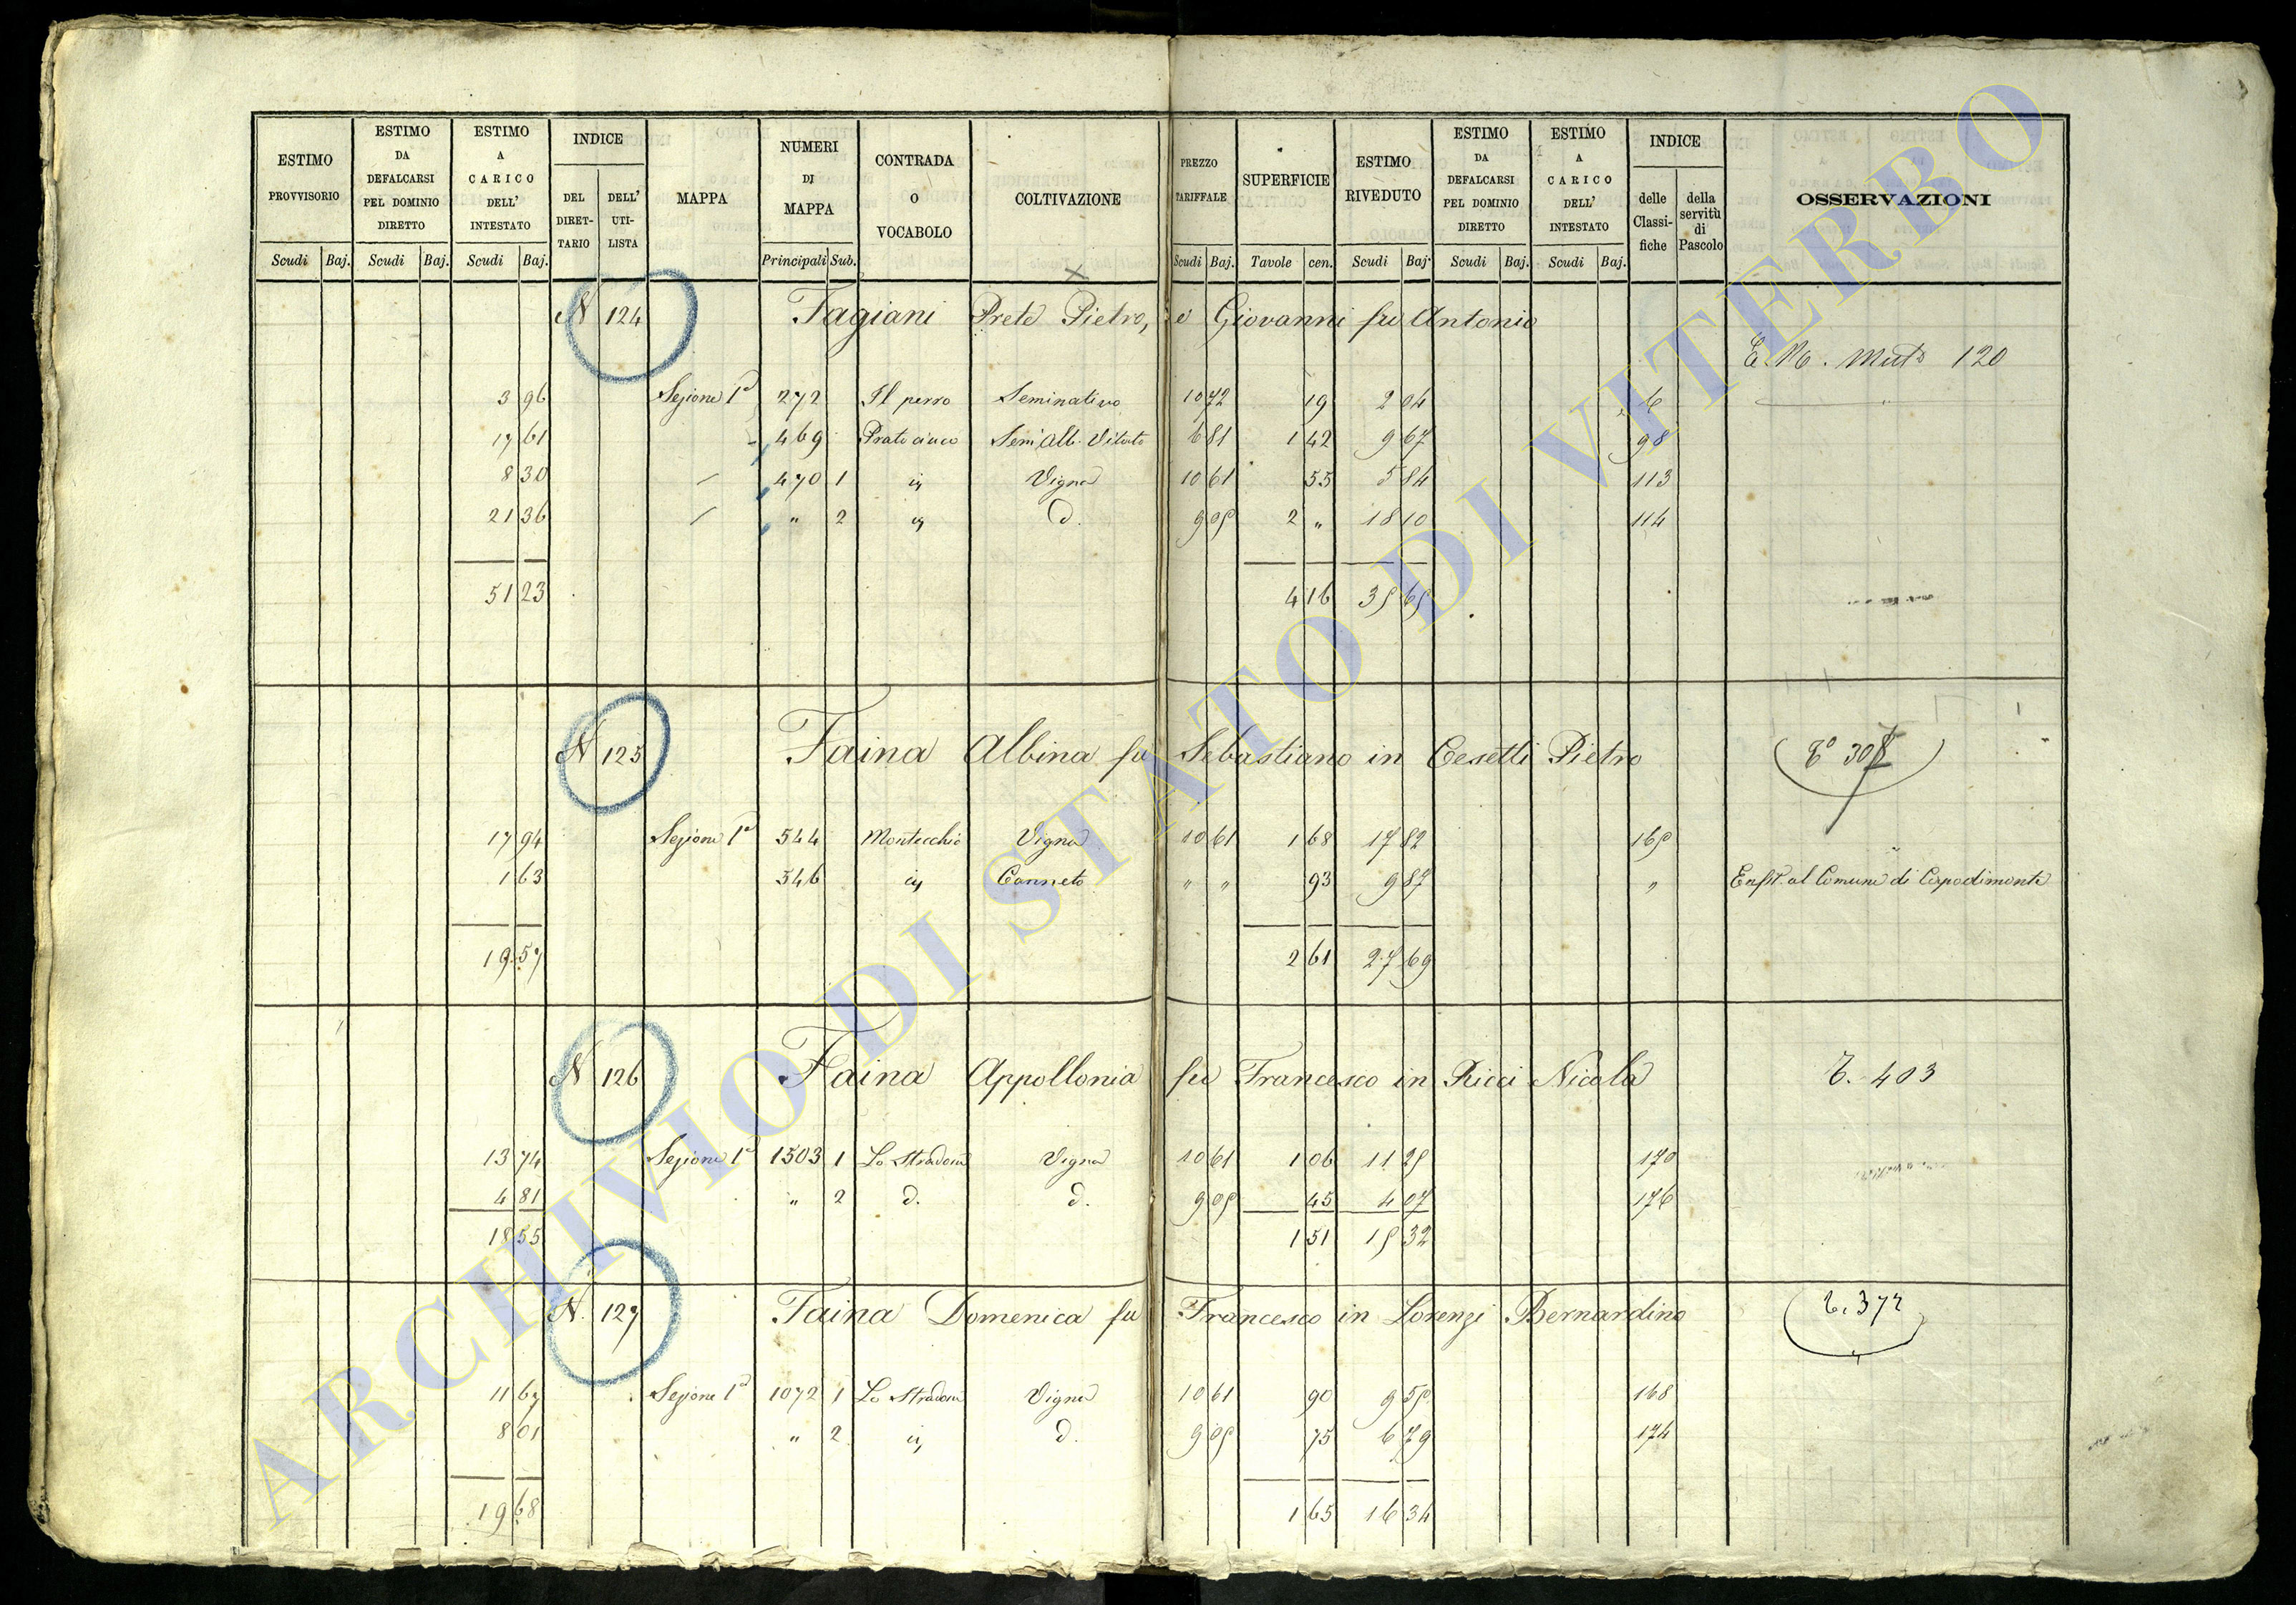 ESTIMO PROVVISORIO
Scudi Baj.
ESTIMO DA DEFALCARSI PEL DOMINIO DIRETTO
Scudi Baj.
ESTIMO A CARICO DELL' INTESTATO
Scudi Baj.
INDICE
DEL DIRET-TARIO
DELL' UTI-LISTA
MAPPA
NUMERI DI MAPPA
Principali Sub.
CONTRADA O VOCABOLO
COLTIVAZIONE
PREZZO TARIFFALE
Scudi Baj.
SUPERFICIE
Tavole cen.
ESTIMO RIVEDUTO
Scudi Baj.
ESTIMO DA DEFALCARSI PEL DOMINIO DIRETTO
Scudi Baj.
ESTIMO A CARICO DELL' INTESTATO
Scudi Baj.
INDICE
delle Classi-fiche
della servitù di Pascolo
OSSERVAZIONI
N 124 Fagiani Prete Pietro, e Giovanni fu Antonio
120
3 96 Sezione 1ª 272 Il perro Seminativo 10 72 19 2 04 6
17 61 469 Prato Semi Alb. Vitato 6 81 1 42 9 67 98
8 30 470 1 id Vigna 10 61 55 5 84 113
21 36 " 2 id d. 9 05 2 " 18 10 114
51 23 4 16 35 65
N 125 Faina Albina fu Sebastiano in Cesetti Pietro
17 94 Sezione 1ª 544 Montecchio Vigna 10 61 1 68 17 82 165
1 63 546 id Canneto " " 93 9 87 " Enfit. al Comune di Capodimonte
19 57 2 61 27 69
N 126 Faina Appollonia fu Francesco in Ricci Nicola T. 403
13 74 Sezione 1ª 1503 1 Lo Stradone Vigna 10 61 1 06 11 25 170
4 81 " 2 d. d. 9 05 45 4 07 176
18 55 1 51 15 32
N. 127 Faina Domenica fu Francesco in Lorenzi Bernardino T. 372
11 67 Sezione 1ª 1072 1 Lo Stradone Vigna 10 61 90 9 55 168
8 01 " 2 id d. 9 05 75 6 79 174
19 68 1 65 16 34
ARCHIVIO DI STATO DI VITERBO